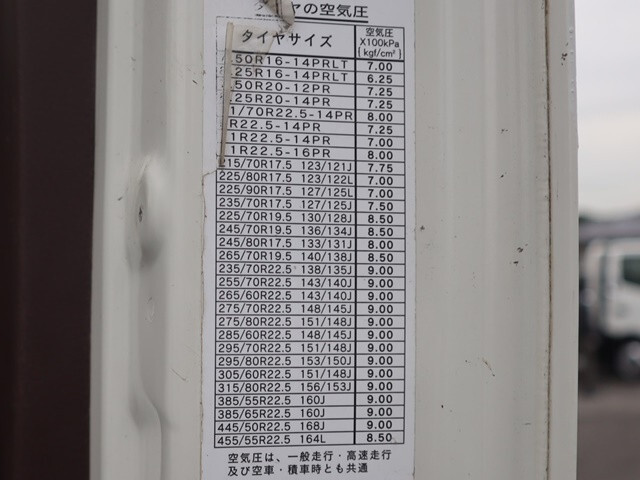 ヤの空気圧
タイヤサイズ 空気圧 X100kPa {kgf/cm²}
.50R16-14PRLT 7.00
.25R16-14PRLT 6.25
.50R20-12PR 7.25
.25R20-14PR 7.25
1/70R22.5-14PR 8.00
R22.5-14PR 7.25
1R22.5-14PR 7.00
1R22.5-16PR 8.00
215/70R17.5 123/121J 7.75
225/80R17.5 123/122L 7.00
225/90R17.5 127/125L 7.00
235/70R17.5 127/125J 7.50
225/70R19.5 130/128J 8.50
245/70R19.5 136/134J 8.50
245/80R17.5 133/131J 8.00
265/70R19.5 140/138J 8.50
235/70R22.5 138/135J 9.00
255/70R22.5 143/140J 9.00
265/60R22.5 143/140J 9.00
275/70R22.5 148/145J 9.00
275/80R22.5 151/148J 9.00
285/60R22.5 148/145J 9.00
295/70R22.5 151/148J 9.00
295/80R22.5 153/150J 9.00
305/60R22.5 151/148J 9.00
315/80R22.5 156/153J 9.00
385/55R22.5 160J 9.00
385/65R22.5 160J 9.00
445/50R22.5 168J 9.00
455/55R22.5 164L 8.50
空気圧は、一般走行・高速走行
及び空車・積車時とも共通